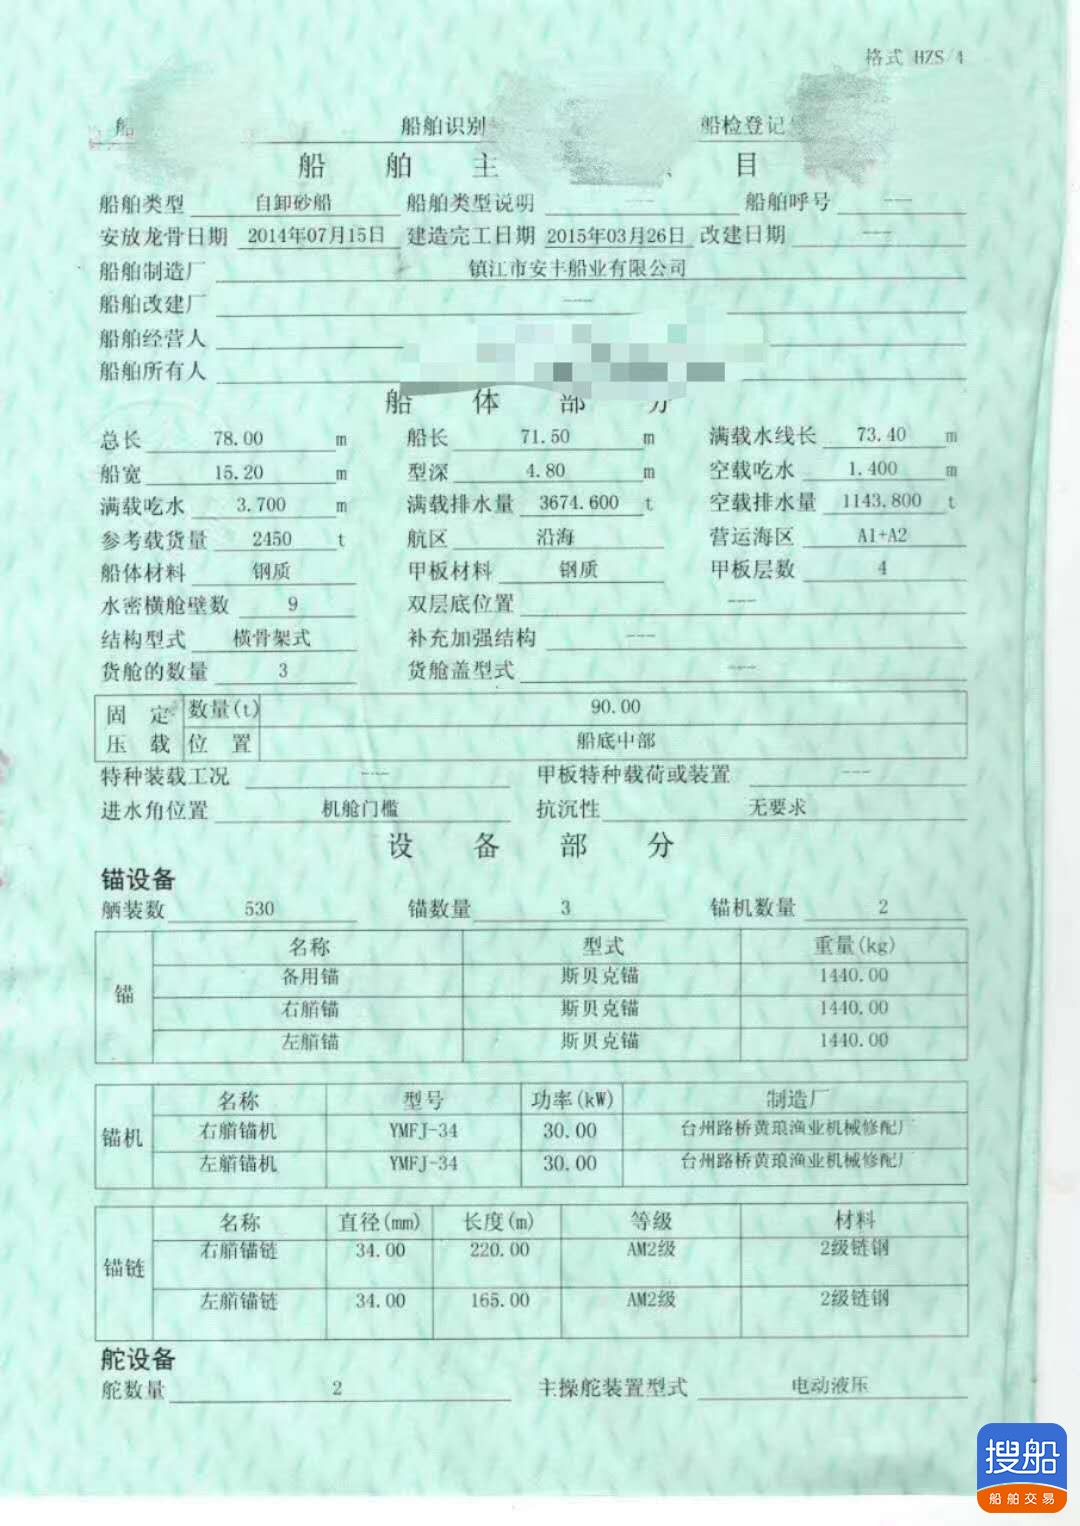 格式 HZS/4
船 船舶识别 船检登记
船 舶 主 、 目
船舶类型 自卸砂船 船舶类型说明 --- 船舶呼号 ---
安放龙骨日期 2014年07月15日 建造完工日期 2015年03月26日 改建日期 ---
船舶制造厂 镇江市安丰船业有限公司
船舶改建厂 ---
船舶经营人
船舶所有人
船 体 部 分
总长 78.00 m 船长 71.50 m 满载水线长 73.40 m
船宽 15.20 m 型深 4.80 m 空载吃水 1.400 m
满载吃水 3.700 m 满载排水量 3674.600 t 空载排水量 1143.800 t
参考载货量 2450 t 航区 沿海 营运海区 A1+A2
船体材料 钢质 甲板材料 钢质 甲板层数 4
水密横舱壁数 9 双层底位置 ---
结构型式 横骨架式 补充加强结构 ---
货舱的数量 3 货舱盖型式 ---
固定压载 数量(t) 90.00
位置 船底中部
特种装载工况 --- 甲板特种载荷或装置 ---
进水角位置 机舱门槛 抗沉性 无要求
设 备 部 分
锚设备
舾装数 530 锚数量 3 锚机数量 2
锚 名称 型式 重量(kg)
备用锚 斯贝克锚 1440.00
右艏锚 斯贝克锚 1440.00
左艏锚 斯贝克锚 1440.00
锚机 名称 型号 功率(kW) 制造厂
右艏锚机 YMFJ-34 30.00 台州路桥黄琅渔业机械修配厂
左艏锚机 YMFJ-34 30.00 台州路桥黄琅渔业机械修配厂
锚链 名称 直径(mm) 长度(m) 等级 材料
右艏锚链 34.00 220.00 AM2级 2级链钢
左艏锚链 34.00 165.00 AM2级 2级链钢
舵设备
舵数量 2 主操舵装置型式 电动液压
搜船
船舶交易